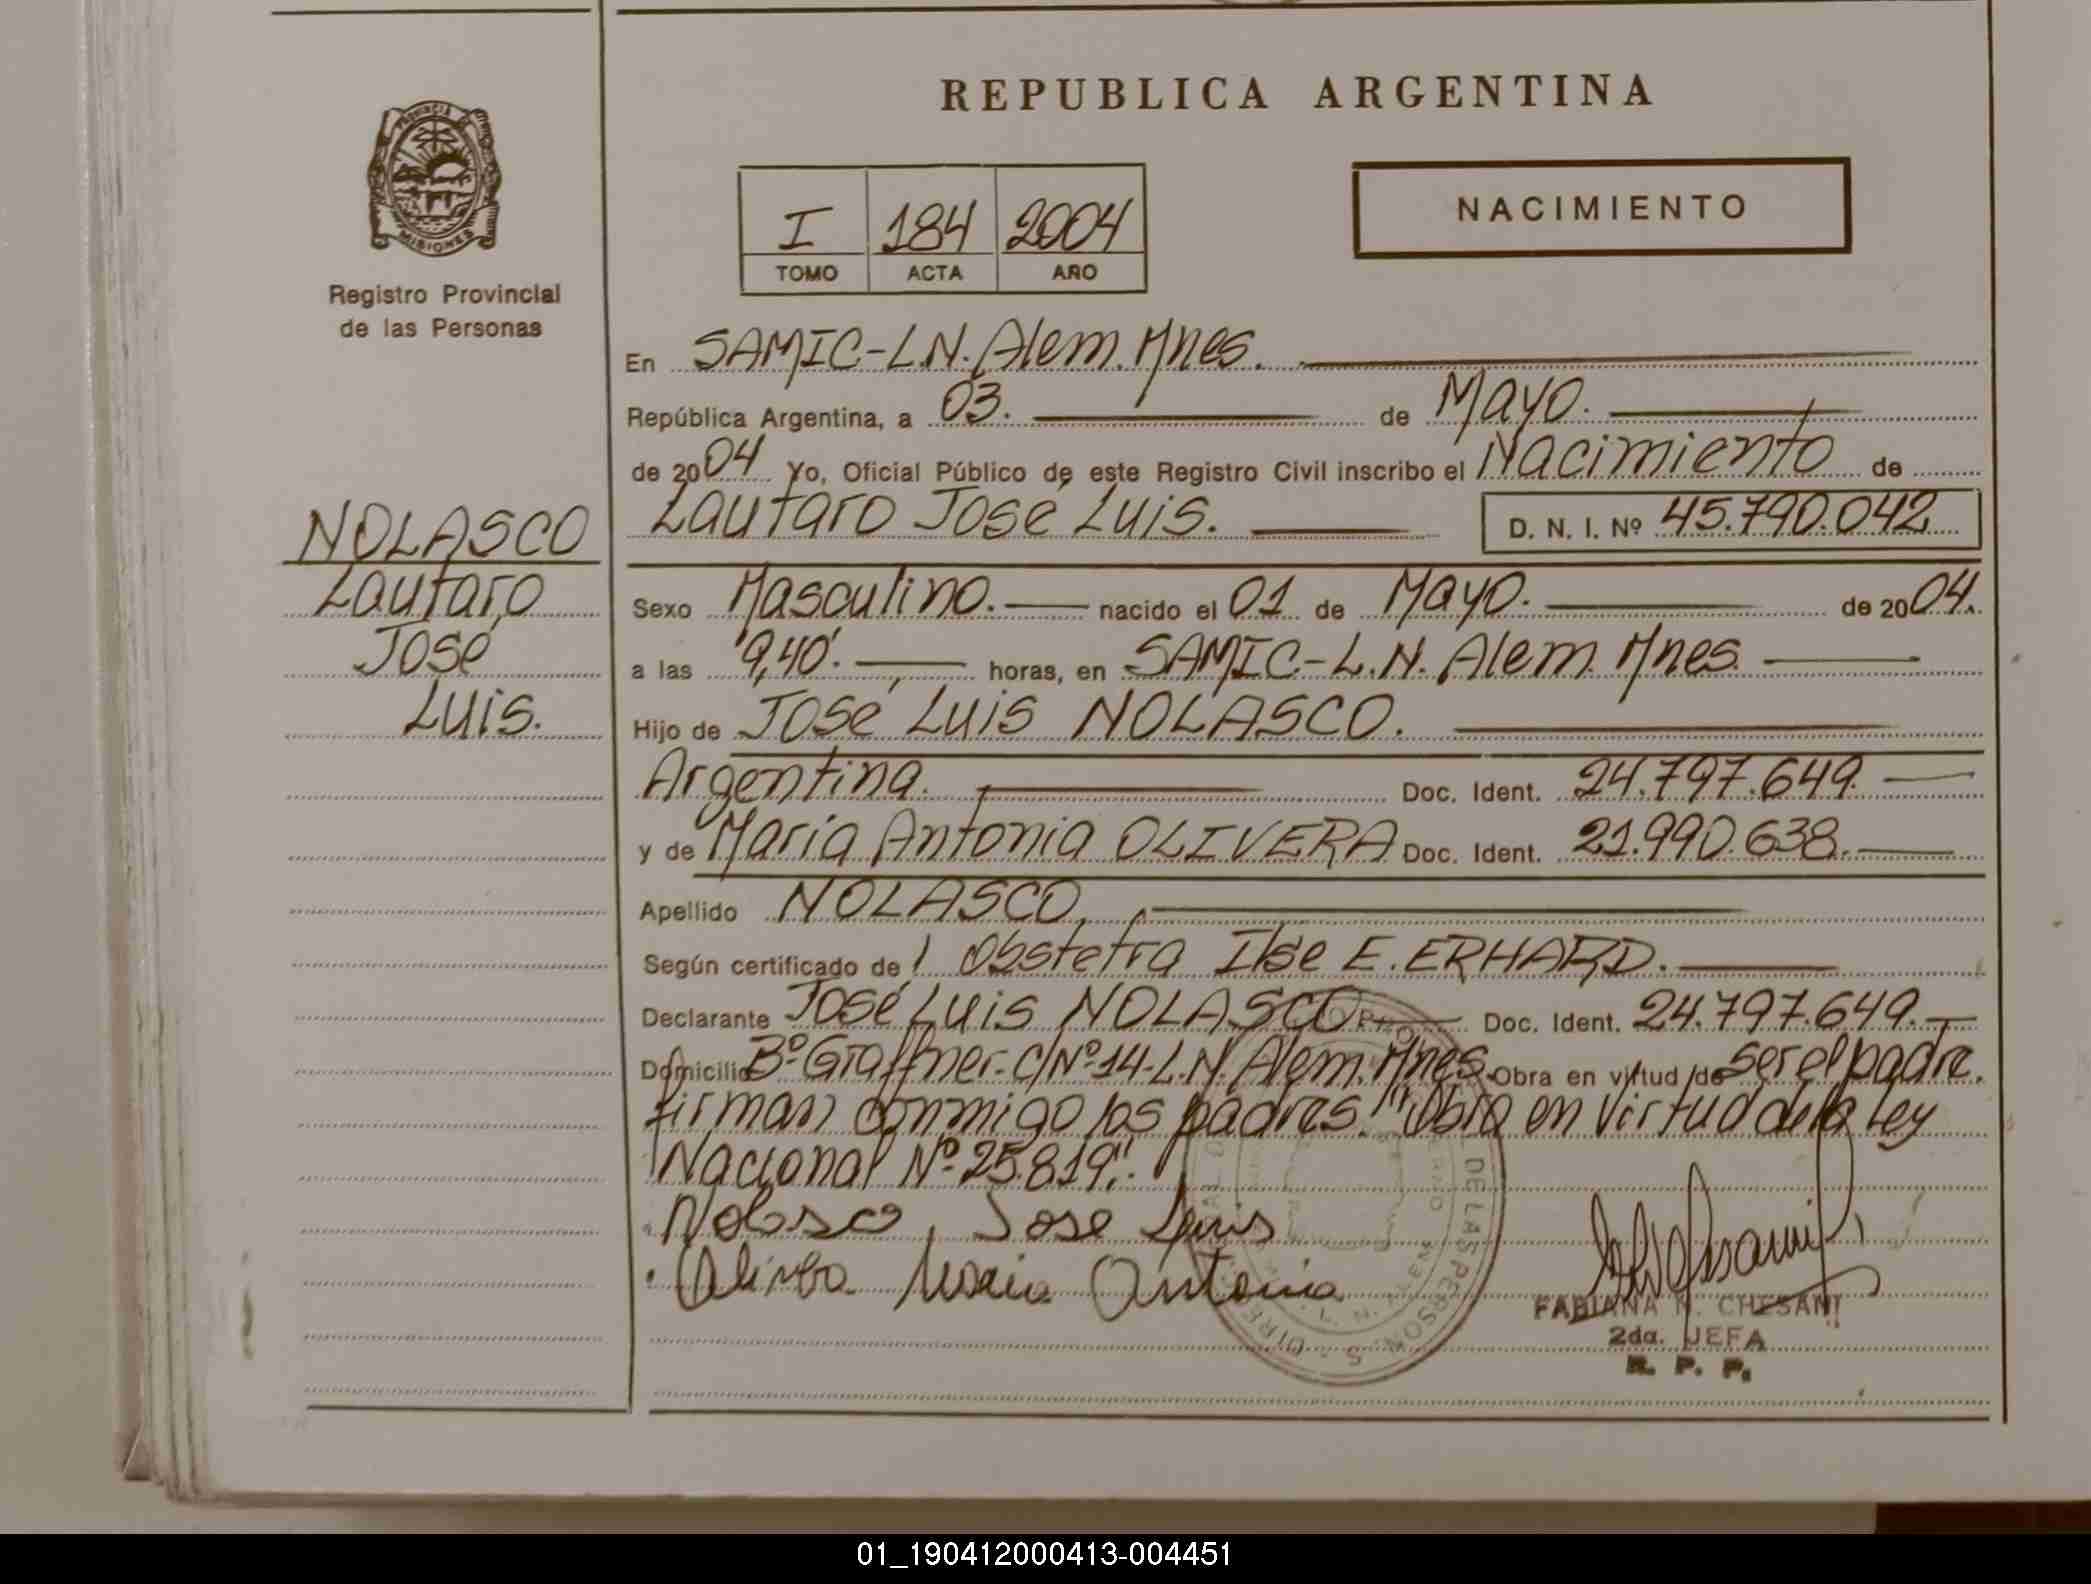 REPUBLICA ARGENTINA
PROVINCIA DE
MISIONES
Registro Provincial
de las Personas
I 184 2004
TOMO ACTA AÑO
NACIMIENTO
En SAMIC-L.N. Alem. Mnes.
República Argentina, a 03. de Mayo.
de 2004 Yo, Oficial Público de este Registro Civil inscribo el Nacimiento de
Lautaro José Luis. D. N. I. Nº 45.790.042
NOLASCO
Lautaro
José
Luis.
Sexo Masculino. nacido el 01 de Mayo. de 2004.
a las 9,40'. horas, en SAMIC.-L.N. Alem. Mnes.
Hijo de José Luis NOLASCO.
Argentina. Doc. Ident. 24.797.649.
y de María Antonia OLIVERA Doc. Ident. 21.990.638.
Apellido NOLASCO,
Según certificado de Obstetra Ilse E. ERHARD.
Declarante José Luis NOLASCO Doc. Ident. 24.797.649.
Domicilio Bº Graffner- C/Nº 14-L.N. Alem. Mnes. Obra en virtud de ser el padre.
firman conmigo los padres. "Obra en virtud de la Ley
Nacional Nº 25.819".
Nolasco, Jose Luis
Olivera Maria Antonia
DE LAS PERSON
FABIANA N. CHESANI
2da. JEFA
R. P. P.
01_190412000413-004451